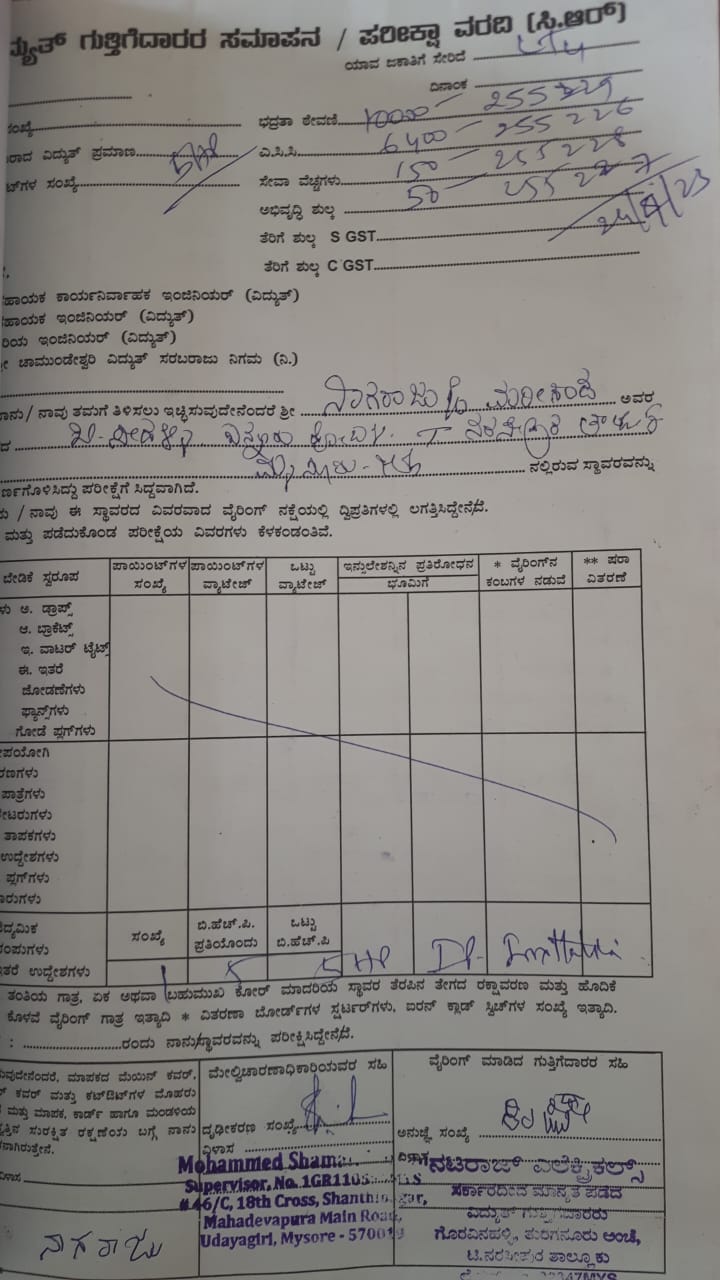 ನ್ಯುತ್ ಗುತ್ತಿಗೆದಾರರ ಸಮಾಪನ / ಪರೀಕ್ಷಾ ವರದಿ (ಸಿ.ಆರ್)
ಯಾವ ಜಕಾತಿಗೆ ಸೇರಿದೆ
ದಿನಾಂಕ
ಸಂಖ್ಯೆ ಭದ್ರತಾ ಠೇವಣಿ 10000 - 255229
ರಾದ ವಿದ್ಯುತ್ ಪ್ರಮಾಣ 5HP ಎ.ಸಿ.ಸಿ 6400 - 255226
ಟ್‌ಗಳ ಸಂಖ್ಯೆ ಸೇವಾ ವೆಚ್ಚಗಳು 150 - 255228
ಅಭಿವೃದ್ಧಿ ಶುಲ್ಕ 50 - 255227
ತೆರಿಗೆ ಶುಲ್ಕ S GST
ತೆರಿಗೆ ಶುಲ್ಕ C GST
ಹಾಯಕ ಕಾರ್ಯನಿರ್ವಾಹಕ ಇಂಜಿನಿಯರ್ (ವಿದ್ಯುತ್)
ಹಾಯಕ ಇಂಜಿನಿಯರ್ (ವಿದ್ಯುತ್)
ರಿಯ ಇಂಜಿನಿಯರ್ (ವಿದ್ಯುತ್)
ಚಾಮುಂಡೇಶ್ವರಿ ವಿದ್ಯುತ್ ಸರಬರಾಜು ನಿಗಮ (ನಿ.)
ನಾನು / ನಾವು ತಮಗೆ ತಿಳಿಸಲು ಇಚ್ಛಿಸುವುದೇನೆಂದರೆ ಶ್ರೀ ನಾಗರಾಜು ಅವರ
ದ
ನಲ್ಲಿರುವ ಸ್ಥಾವರವನ್ನು
ರ್ಣಗೊಳಿಸಿದ್ದು ಪರೀಕ್ಷೆಗೆ ಸಿದ್ಧವಾಗಿದೆ.
/ ನಾವು ಈ ಸ್ಥಾವರದ ವಿವರವಾದ ವೈರಿಂಗ್ ನಕ್ಷೆಯಲ್ಲಿ ದ್ವಿಪ್ರತಿಗಳಲ್ಲಿ ಲಗತ್ತಿಸಿದ್ದೇನೆ/ವೆ.
ಮತ್ತು ಪಡೆದುಕೊಂಡ ಪರೀಕ್ಷೆಯ ವಿವರಗಳು ಕೆಳಕಂಡಂತಿವೆ.
ಬೇಡಿಕೆ ಸ್ವರೂಪ ಪಾಯಿಂಟ್‌ಗಳ ಸಂಖ್ಯೆ ಪಾಯಿಂಟ್‌ಗಳ ವ್ಯಾಟೇಜ್ ಒಟ್ಟು ವ್ಯಾಟೇಜ್ ಇನ್ಸುಲೇಶನ್ನಿನ ಪ್ರತಿರೋಧನ ಭೂಮಿಗೆ * ವೈರಿಂಗ್‌ನ ಕಂಬಗಳ ನಡುವೆ ** ಷರಾ ವಿತರಣೆ
ಳು ಅ. ಡ್ರಾಪ್ಸ್
ಆ. ಬ್ರಾಕೆಟ್ಸ್
ಇ. ವಾಟರ್ ಟೈಟ್ಸ್
ಈ. ಇತರೆ
ಜೋಡಣೆಗಳು
ಫ್ಯಾನ್ಸ್‌ಗಳು
ಗೋಡೆ ಪ್ಲಗ್‌ಗಳು
ಪಯೋಗಿ
ರಣಗಳು
ಪಾತ್ರೆಗಳು
ಟರುಗಳು
ತಾಪಕಗಳು
ಉದ್ದೇಶಗಳು
ಪ್ಲಗ್‌ಗಳು
ಾರುಗಳು
ದ್ಯಮಿಕ ಸಂಖ್ಯೆ ಬಿ.ಹೆಚ್.ಪಿ. ಪ್ರತಿಯೊಂದು ಒಟ್ಟು ಬಿ.ಹೆಚ್.ಪಿ
ಪಂಪುಗಳು
ಇತರೆ ಉದ್ದೇಶಗಳು 1 5 5HP
ತಂತಿಯ ಗಾತ್ರ, ಏಕ ಅಥವಾ ಬಹುಮುಖಿ ಕೋರ್ ಮಾದರಿಯ ಸ್ಥಾವರ ತೆರಪಿನ ತೇಗದ ರಕ್ಷಾವರಣ ಮತ್ತು ಹೊದಿಕೆ
ಕೊಳವೆ ವೈರಿಂಗ್ ಗಾತ್ರ ಇತ್ಯಾದಿ * ವಿತರಣಾ ಬೋರ್ಡ್‌ಗಳ ಸ್ಟರ್ಟರ್‌ಗಳು, ಐರನ್ ಕ್ಲಾಡ್ ಸ್ವಿಚ್‌ಗಳ ಸಂಖ್ಯೆ ಇತ್ಯಾದಿ.
: ರಂದು ನಾನು/ಸ್ಥಾವರವನ್ನು ಪರೀಕ್ಷಿಸಿದ್ದೇನೆ/ವೆ.
ವುದೇನೆಂದರೆ, ಮಾಪಕದ ಮೆಯಿನ್ ಕವರ್,
ಕವರ್ ಮತ್ತು ಕಟ್‌ಔಟ್‌ಗಳ ಮೊಹರು
ಮತ್ತು ಮಾಪಕ, ಕಾರ್ಡ್ ಹಾಗೂ ಮಂಡಳಿಯ
ತ್ತಿನ ಸುರಕ್ಷಿತ ರಕ್ಷಣೆಯ ಬಗ್ಗೆ ನಾನು
ನಾಗಿರುತ್ತೇನೆ.
ವಿಳಾಸ
ನಾಗರಾಜು
ಮೇಲ್ವಿಚಾರಣಾಧಿಕಾರಿಯವರ ಸಹಿ
ದೃಢೀಕರಣ ಸಂಖ್ಯೆ
ವಿಳಾಸ
Mohammed Sham
Supervisor, No. 1GR1105
#46/C, 18th Cross, Shanthinagar,
Mahadevapura Main Road,
Udayagiri, Mysore - 570019
ವೈರಿಂಗ್ ಮಾಡಿದ ಗುತ್ತಿಗೆದಾರರ ಸಹಿ
ಅನುಜ್ಞೆ ಸಂಖ್ಯೆ
ನಟರಾಜ್ ಎಲೆಕ್ಟ್ರಿಕಲ್ಸ್
ಸರ್ಕಾರದಿಂದ ಮಾನ್ಯತೆ ಪಡೆದ
ವಿದ್ಯುತ್ ಗುತ್ತಿಗೆದಾರರು
ಗೊರವಿನಹಳ್ಳಿ, ತುರಗನೂರು ಅಂಚೆ,
ಟಿ.ನರಸೀಪುರ ತಾಲ್ಲೂಕು